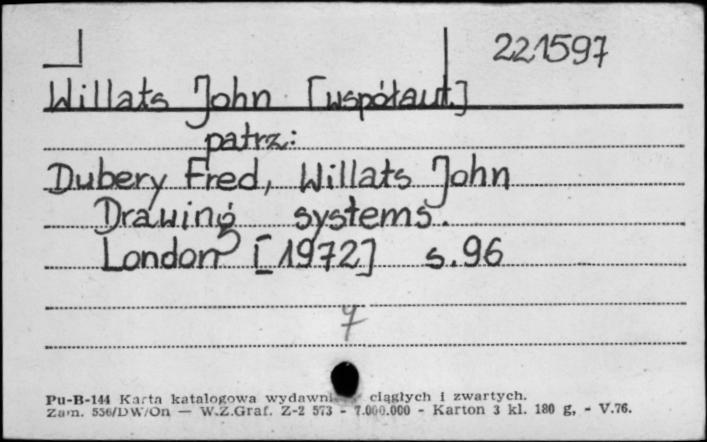 221597
Willats John [współaut.]
patrz:
Dubery Fred, Willats John
Drawing systems.
London [1972] s. 96
Pu-B-144 Karta katalogowa wydawni ciągłych i zwartych.
Zam. 556/DW/On — W.Z.Graf. Z-2 573 - 7.000.000 - Karton 3 kl. 180 g, - V.76.